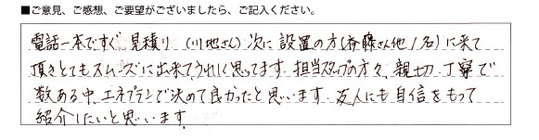 ■ご意見、ご感想、ご要望がございましたら、ご記入ください。
電話一本ですぐ見積り(川地さん)次に設置の方(斎藤さん他1名)に来て
頂きとてもスムーズに出来て、うれしく思ってます。担当スタッフの方々、親切、丁寧で
数ある中、エネプランで決めて良かったと思います。友人にも自信をもって
紹介したいと思います。